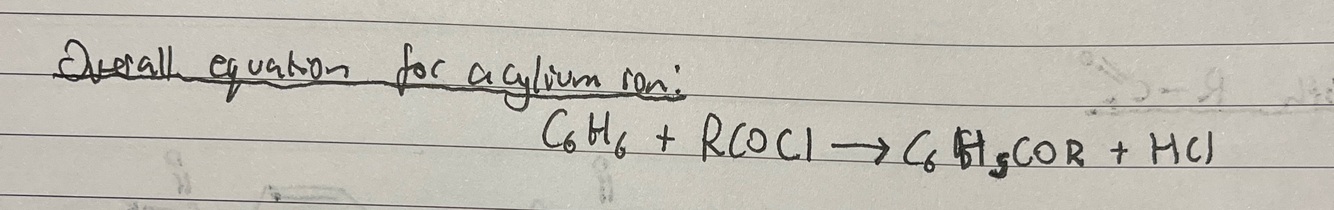 Overall equation for acylium ion:
C₆H₆ + RCOCl → C₆H₅COR + HCl